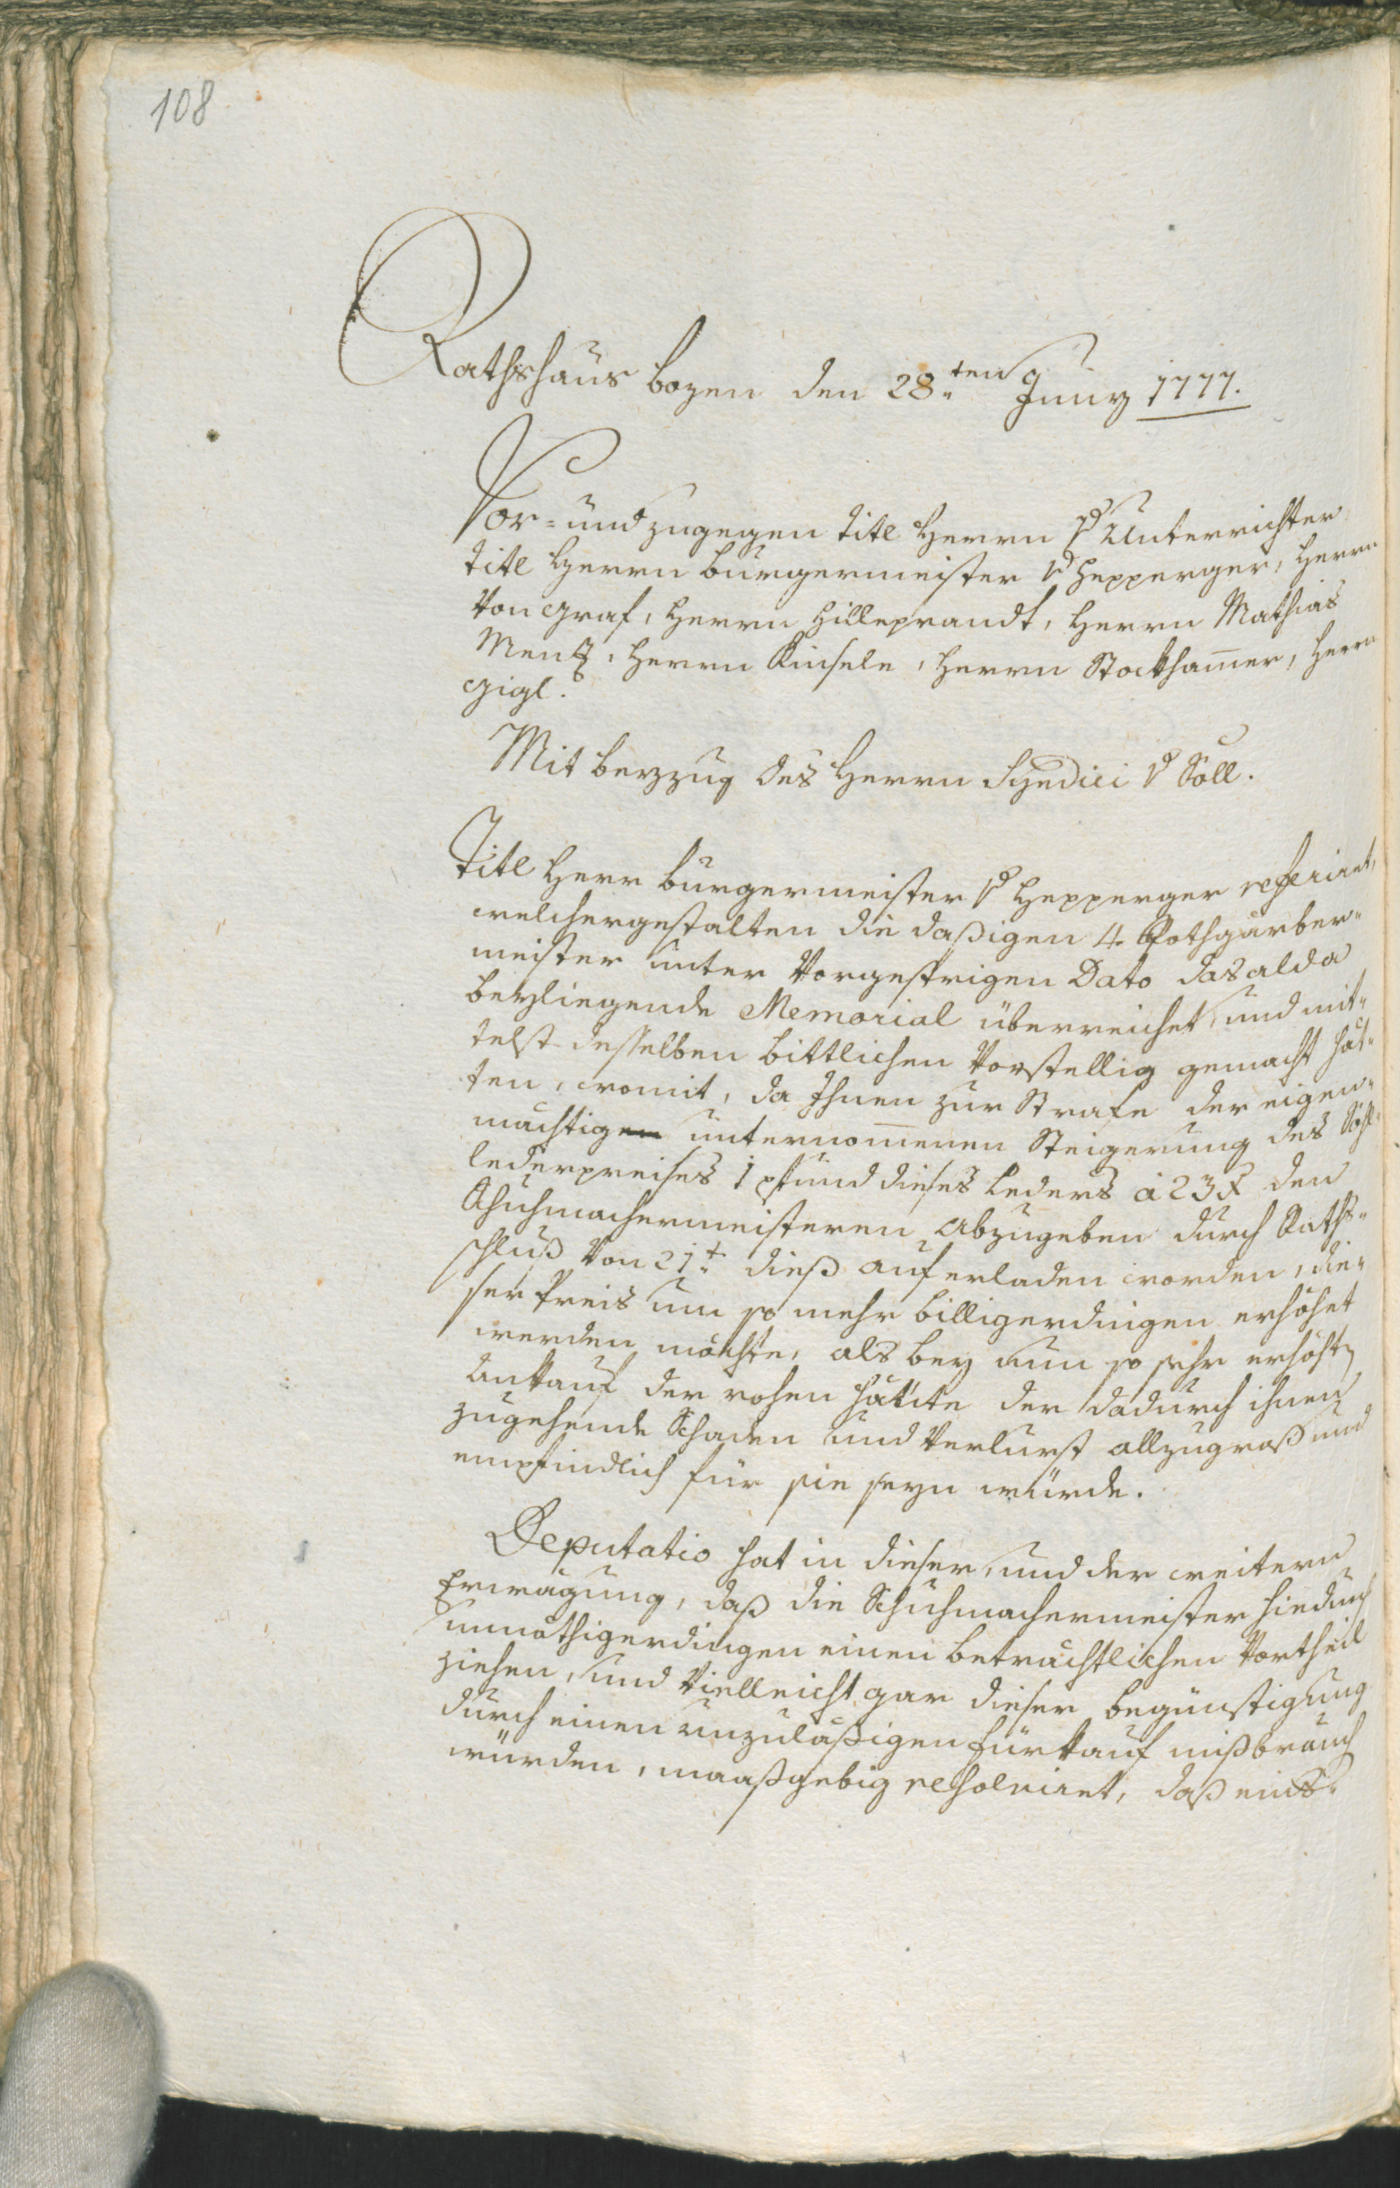 108
Rathshaus bozen den 28.ten Juny 1777.
Vor- und zugegen Titl Herrn v Unterrichter
Titl Herrn burgermeister v Hepperger, Herrn
von Graf, Herrn Hilleprandt, Herrn Mathias
Menz, Herrn Kinsele, Herrn Stockham̄er, Herrn
Gigl.
Mit beyzug des Herrn Syndici v Söll.
Titl Herr burgermeister v Hepperger referiret,
welchergestalten die daßigen 4. Rothgärber-
meister unter vorgestrigen Dato das alda
beyliegende Memorial überreichet, und mit-
telst desselben bittlichen vorstellig gemacht hät-
ten, womit, da Ihnen zur Strafe der eigen-
mächtigen unternom̄enen Steigerung des Söhl-
lederpreises 1 pfund dieses Leders à 23 x den
Schuhmachermeisteren abzugeben durch Raths-
schluß von 21.t dieß auferladen worden, die-
ser Preis um so mehr billigerdingen erhöhet
werden möchte, als bey nun so sehr erhöhtn
Ankauf der rohen Häute der dadurch ihnen
zugehende Schaden und Verlurst allzugroß und
empfindlich für sie seyn würde.
Deputatio hat in dieser, und der weitern
Erwägung, daß die Schuhmachermeister hiedurch
unnöthigerdingen einen beträchtlichen Vortheil
ziehen, und vielleicht gar dieser begünstigung
durch einen unzuläßigen Fürkauf mißbrauch
würden, maaßgebig resolviret, daß eins-